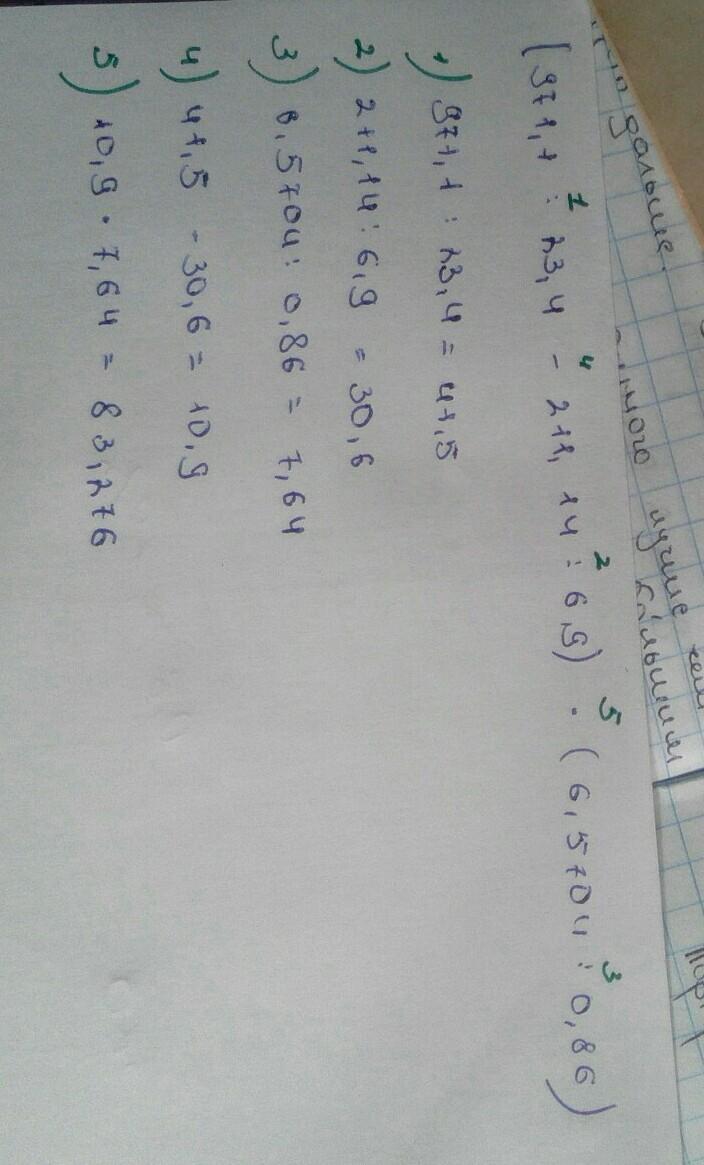 дальше.
лучше
большим
1 4 2 5 3
(971,1 : 23,4 - 211,14 : 6,9) · (6,5704 : 0,86)
1) 971,1 : 23,4 = 41,5
2) 211,14 : 6,9 = 30,6
3) 6,5704 : 0,86 = 7,64
4) 41,5 - 30,6 = 10,9
5) 10,9 · 7,64 = 83,276